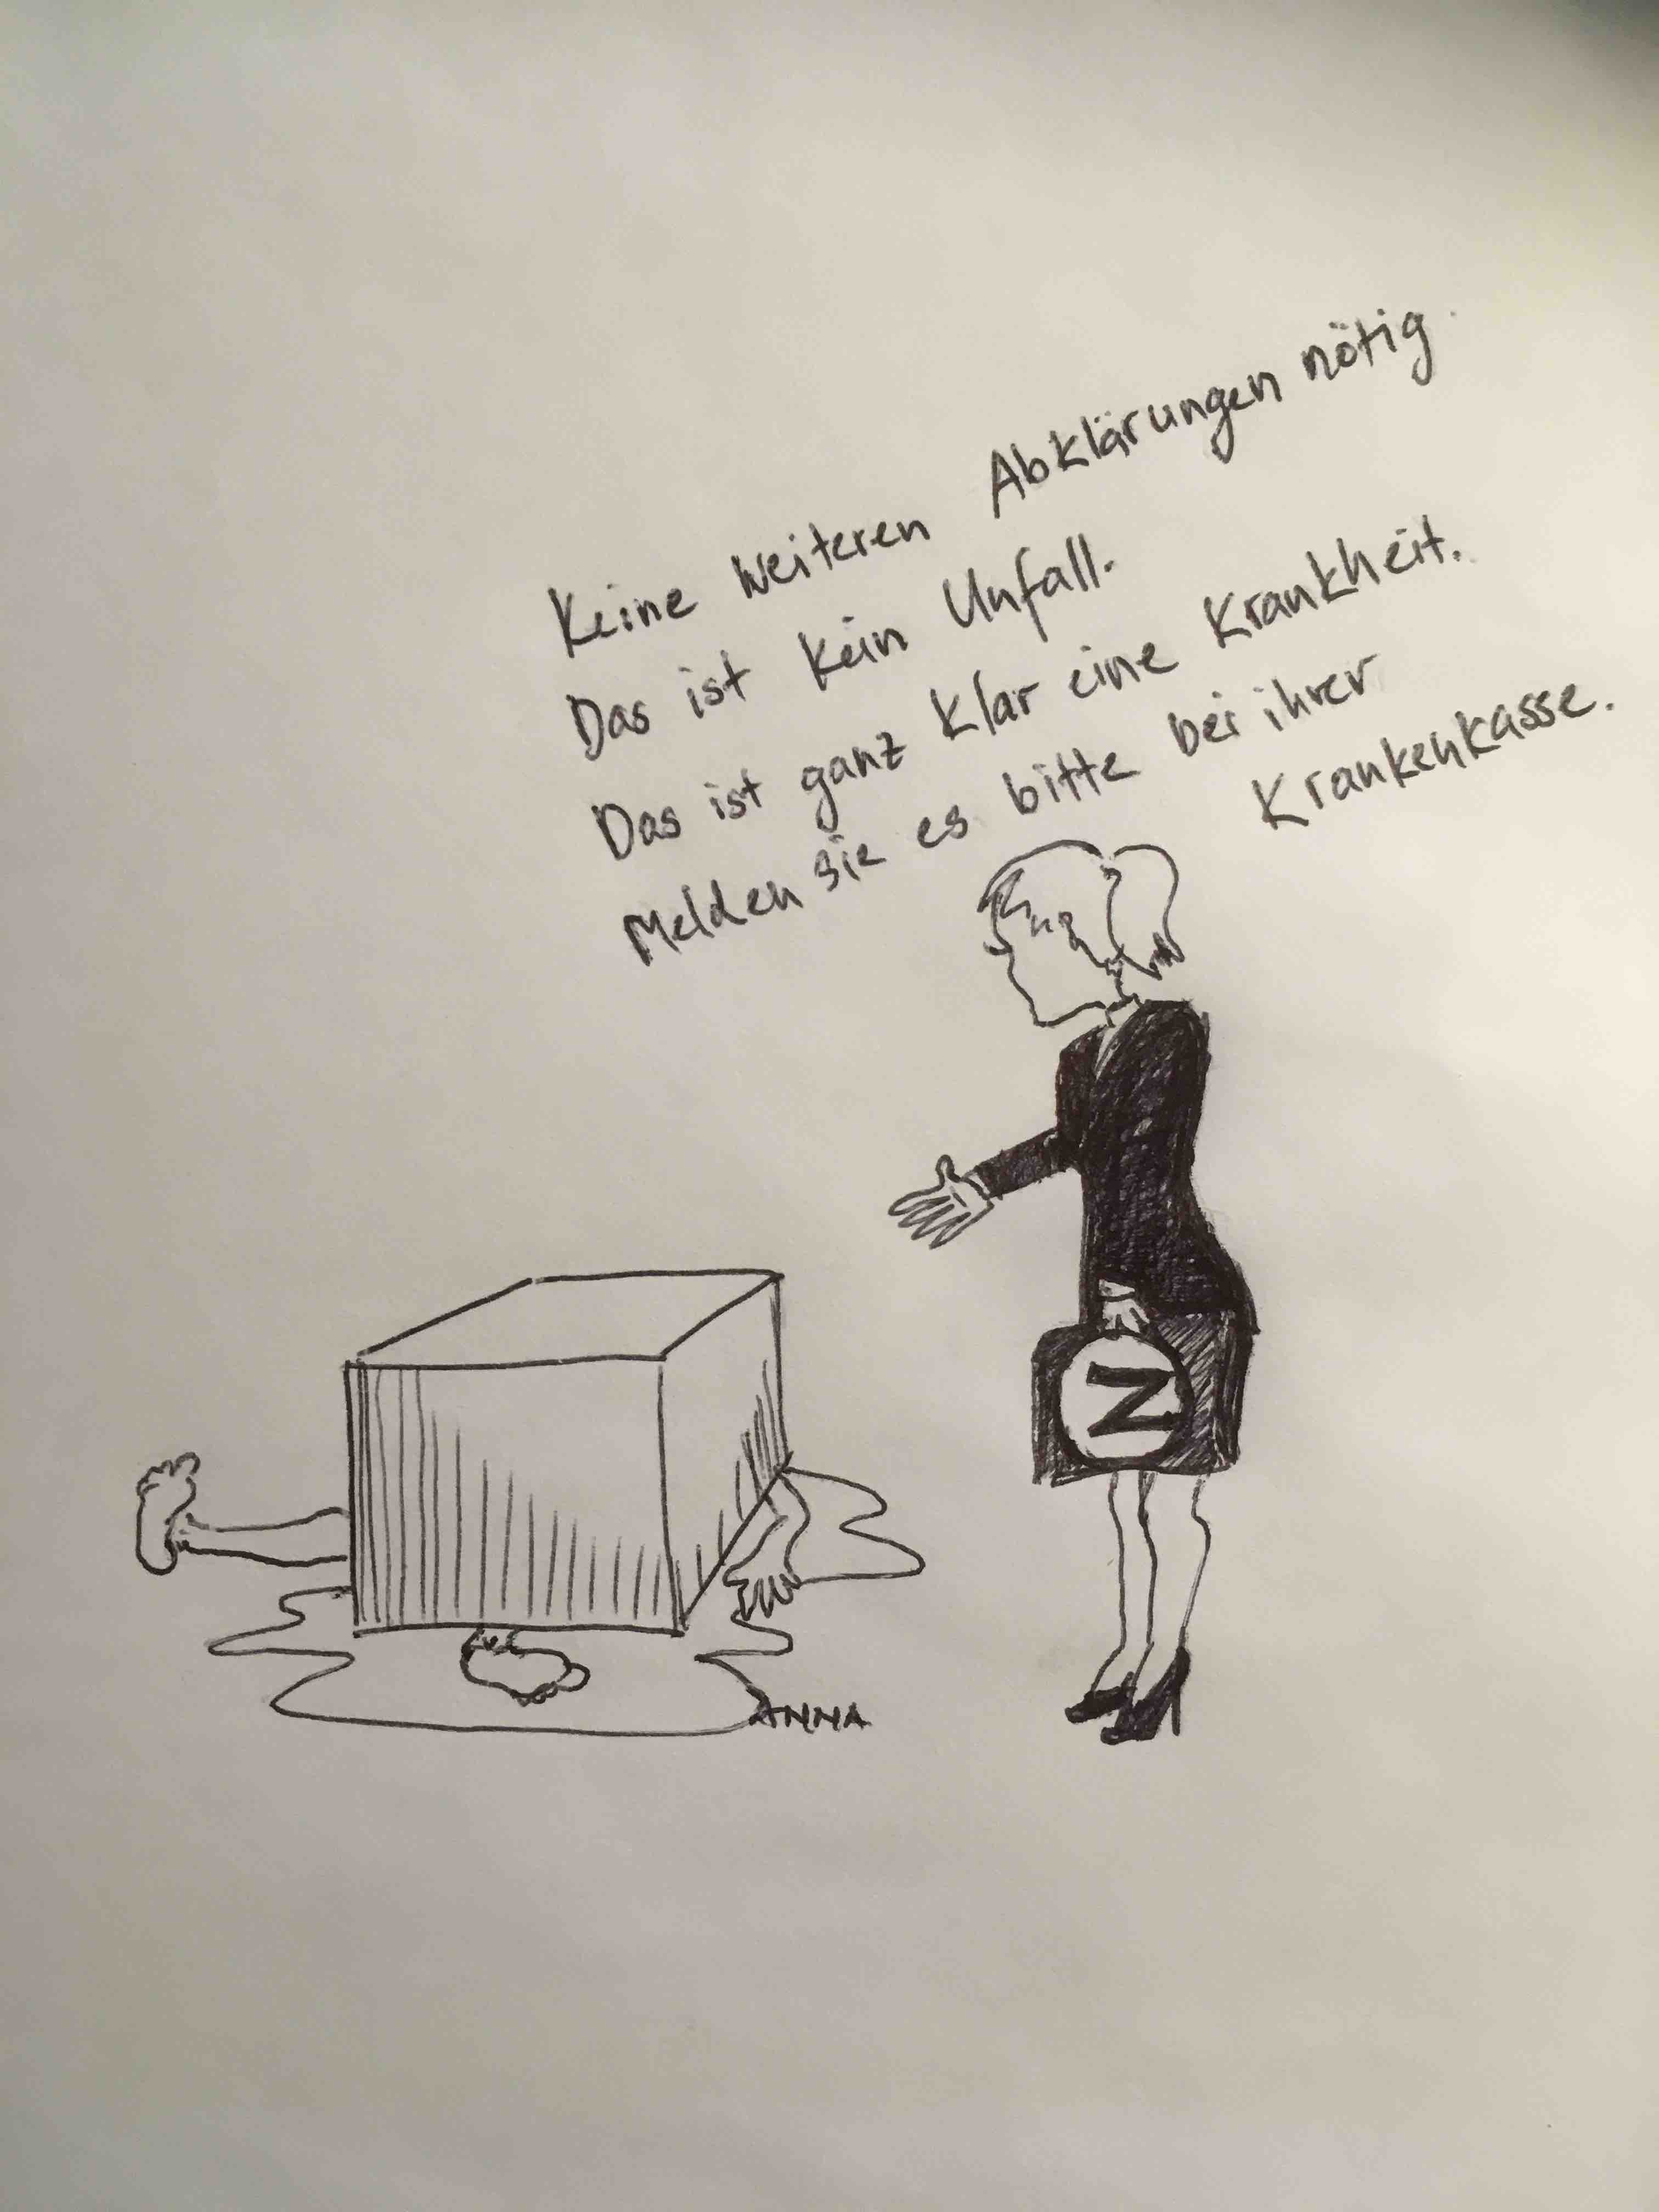 Keine weiteren Abklärungen nötig.
Das ist kein Unfall.
Das ist ganz klar eine Krankheit.
Melden sie es bitte bei ihrer
Krankenkasse.
N
ANNA